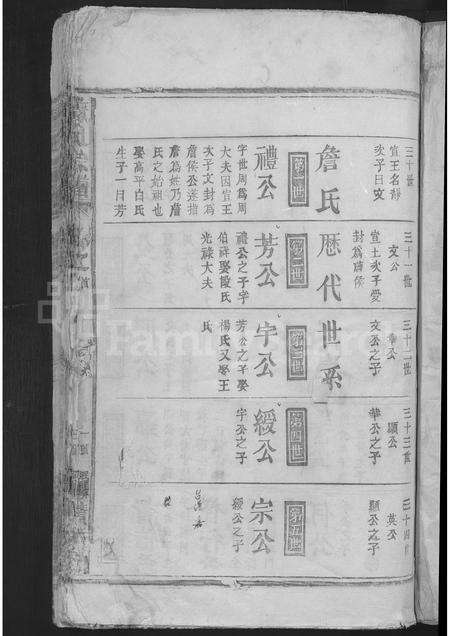 三十世
宣王名靜
次子曰文
三十一世
文公
宣王次子愛
封為唐侯
三十二世
華公
文公之子
三十三世
顯公
華公之子
三十四世
英公
顯公之子
詹氏歷代世系
第一世
禮公
字世周為周
大夫因宣王
次子文封為
詹侯公遂指
詹為姓乃詹
氏之始祖也
娶高平白氏
生子一曰芳
第二世
芳公
禮公之子字
伯祥娶嚴氏
光祿大夫
第三世
宇公
芳公之子娶
楊氏又娶王
氏
第四世
綬公
宇公之子
第五世
宗公
綬公之子
FamilySearch